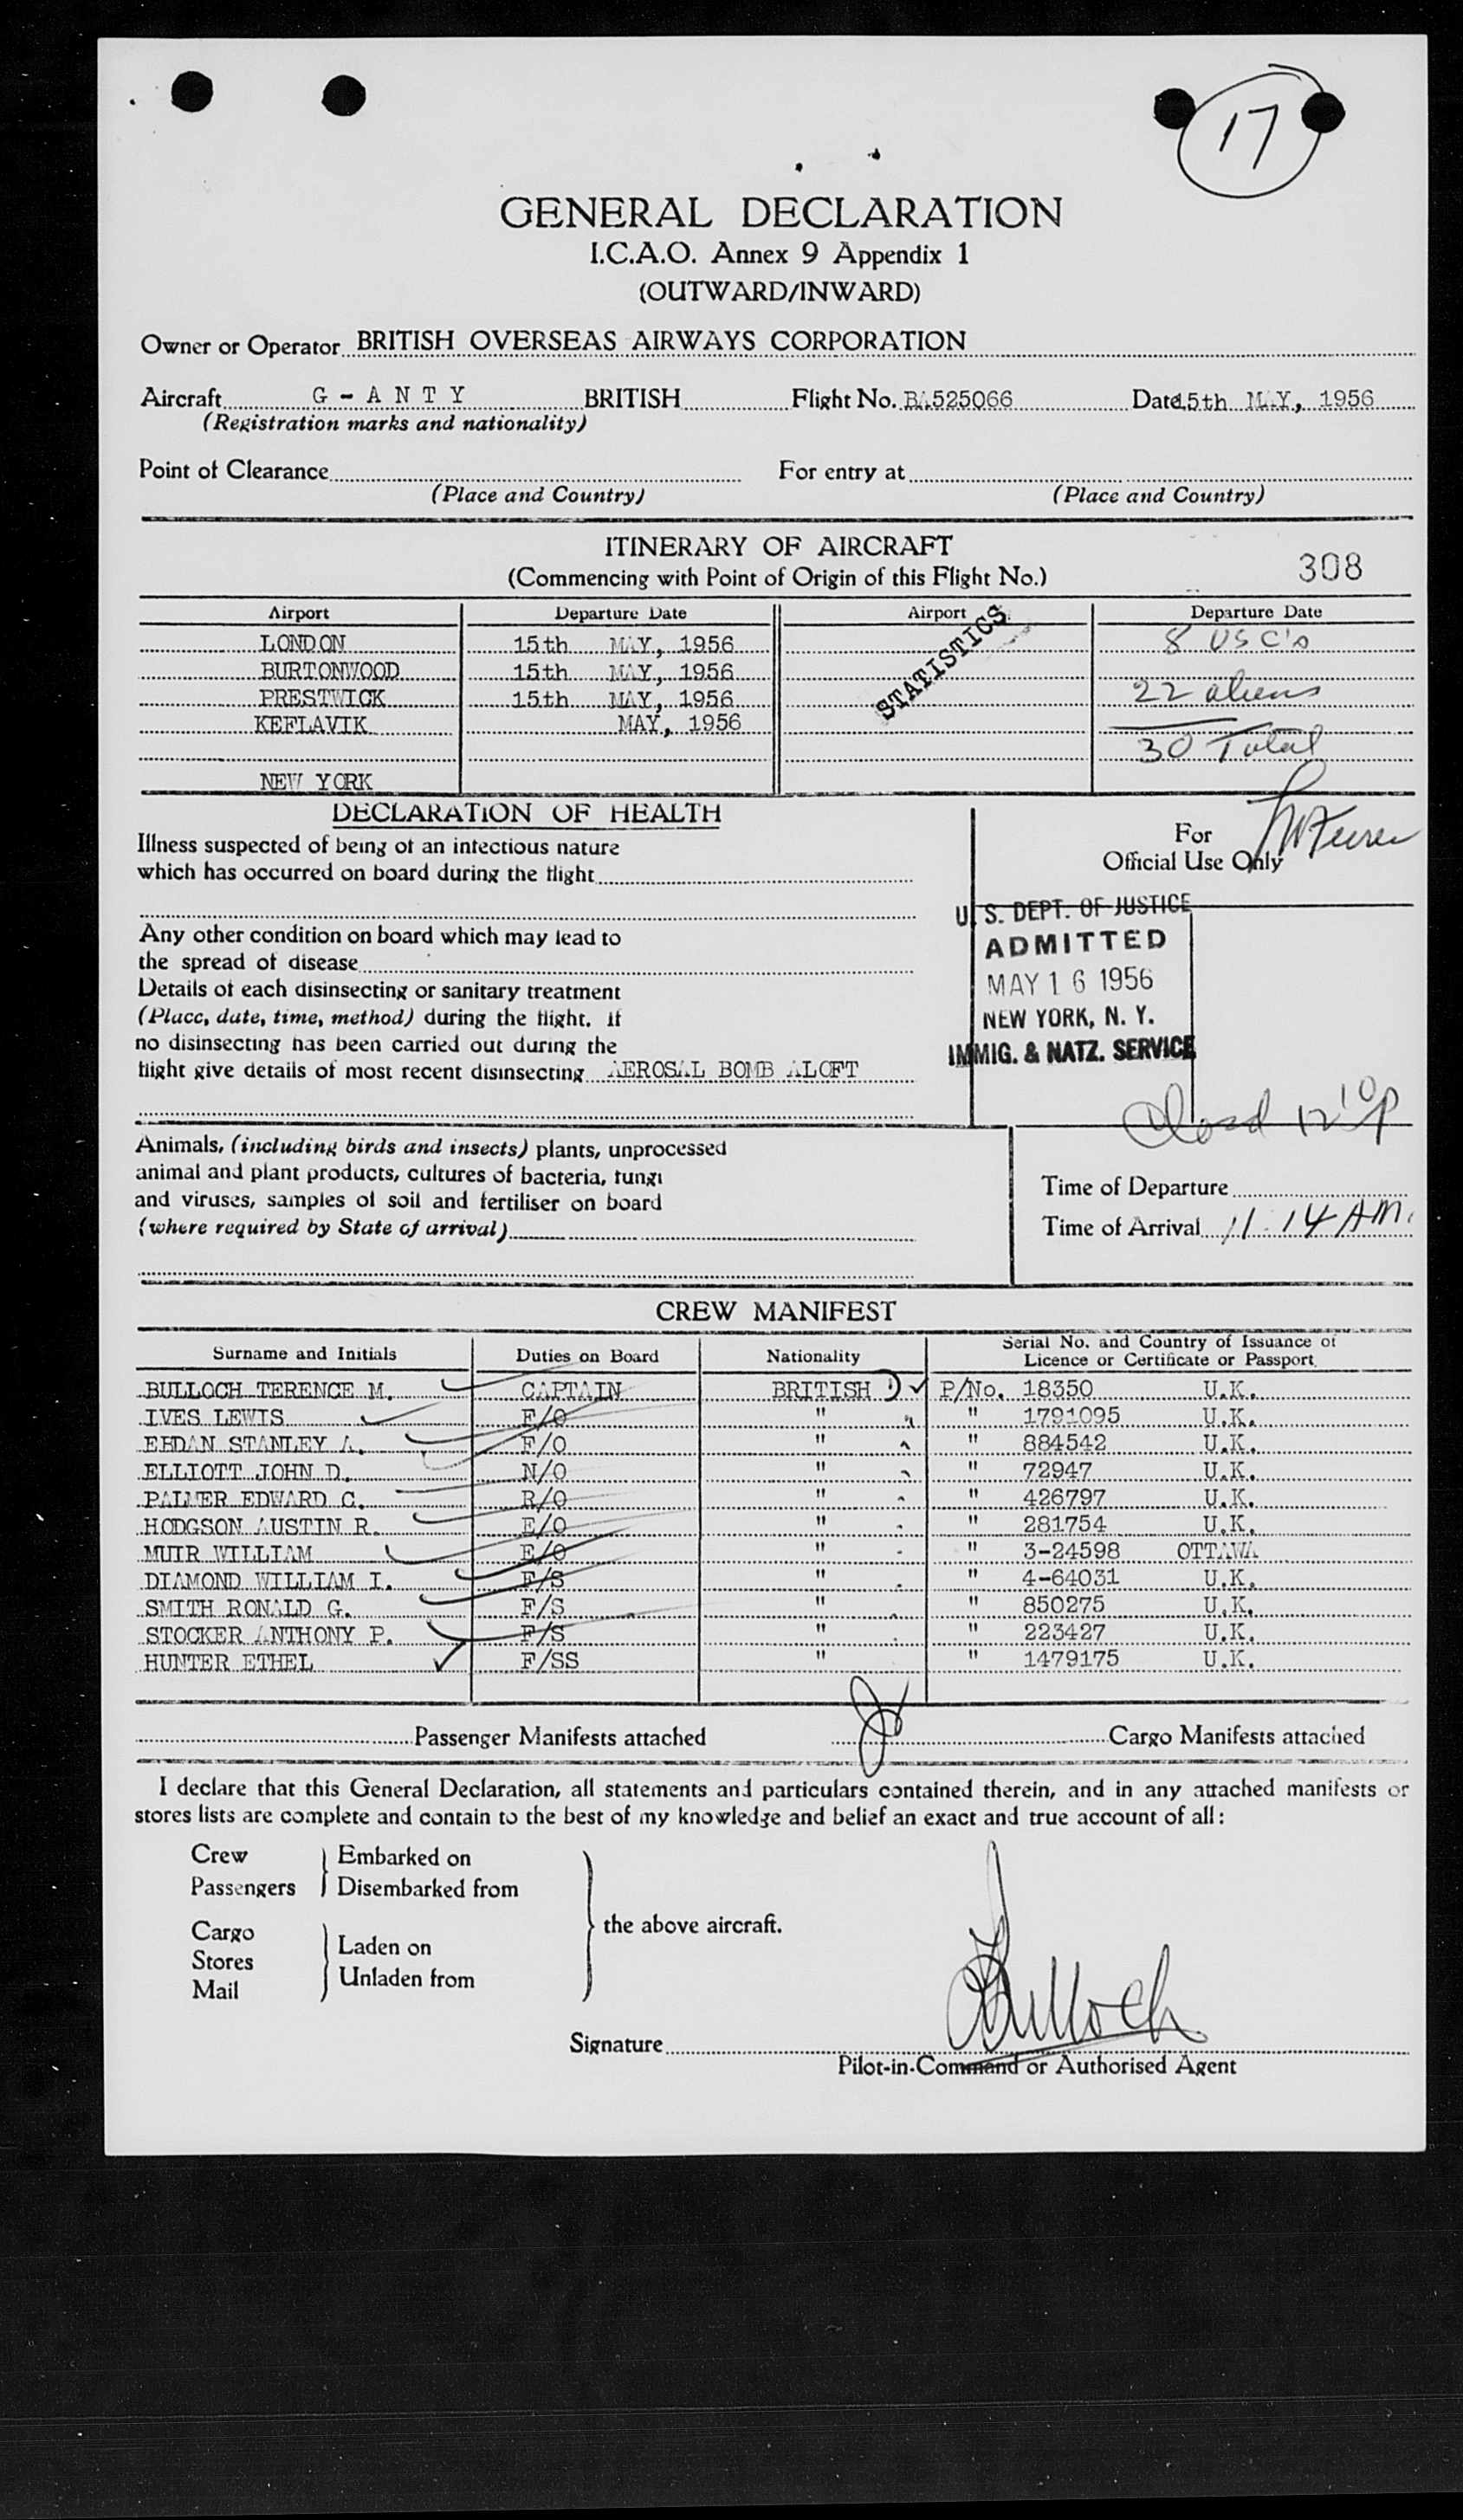 17
GENERAL DECLARATION
I.C.A.O. Annex 9 Appendix 1
(OUTWARD/INWARD)
Owner or Operator BRITISH OVERSEAS AIRWAYS CORPORATION
Aircraft G - A N T Y BRITISH Flight No. BA525066 Date 15th MAY, 1956
(Registration marks and nationality)
Point of Clearance For entry at
(Place and Country) (Place and Country)
ITINERARY OF AIRCRAFT
(Commencing with Point of Origin of this Flight No.) 308
Airport Departure Date Airport Departure Date
LONDON 15th MAY, 1956 8 USC's
BURTONWOOD 15th MAY, 1956 STATISTICS
PRESTWICK 15th MAY, 1956 22 aliens
KEFLAVIK MAY, 1956
30 Total
NEW YORK
DECLARATION OF HEALTH
Illness suspected of being of an infectious nature For
which has occurred on board during the flight Official Use Only
U. S. DEPT. OF JUSTICE
Any other condition on board which may lead to ADMITTED
the spread of disease
Details of each disinsecting or sanitary treatment MAY 16 1956
(Place, date, time, method) during the flight. If NEW YORK, N. Y.
no disinsecting has been carried out during the IMMIG. & NATZ. SERVICE
flight give details of most recent disinsecting AEROSAL BOMB ALOFT
12 10 P
Animals, (including birds and insects) plants, unprocessed
animal and plant products, cultures of bacteria, fungi
and viruses, samples of soil and fertiliser on board Time of Departure
(where required by State of arrival) Time of Arrival 11.14 AM.
CREW MANIFEST
Surname and Initials Duties on Board Nationality Serial No. and Country of Issuance of Licence or Certificate or Passport
BULLOCH TERENCE M. CAPTAIN BRITISH P/No. 18350 U.K.
IVES LEWIS F/O " " 1791095 U.K.
EBDAN STANLEY A. F/O " " 884542 U.K.
ELLIOTT JOHN D. N/O " " 72947 U.K.
PALMER EDWARD C. R/O " " 426797 U.K.
HODGSON AUSTIN R. E/O " " 281754 U.K.
MUIR WILLIAM E/O " " 3-24598 OTTAWA
DIAMOND WILLIAM I. F/S " " 4-64031 U.K.
SMITH RONALD G. F/S " " 850275 U.K.
STOCKER ANTHONY P. F/S " " 223427 U.K.
HUNTER ETHEL F/SS " " 1479175 U.K.
Passenger Manifests attached Cargo Manifests attached
I declare that this General Declaration, all statements and particulars contained therein, and in any attached manifests or
stores lists are complete and contain to the best of my knowledge and belief an exact and true account of all:
Crew Embarked on
Passengers Disembarked from
the above aircraft.
Cargo Laden on
Stores
Mail Unladen from
Bulloch
Signature
Pilot-in-Command or Authorised Agent